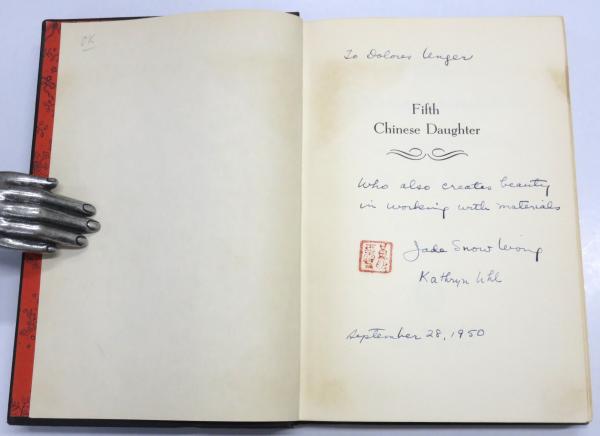 OK
To Dolores Unger
Fifth
Chinese Daughter
Who also creates beauty
in working with materials
Jade Snow Wong
Kathryn Uhl
September 28, 1950